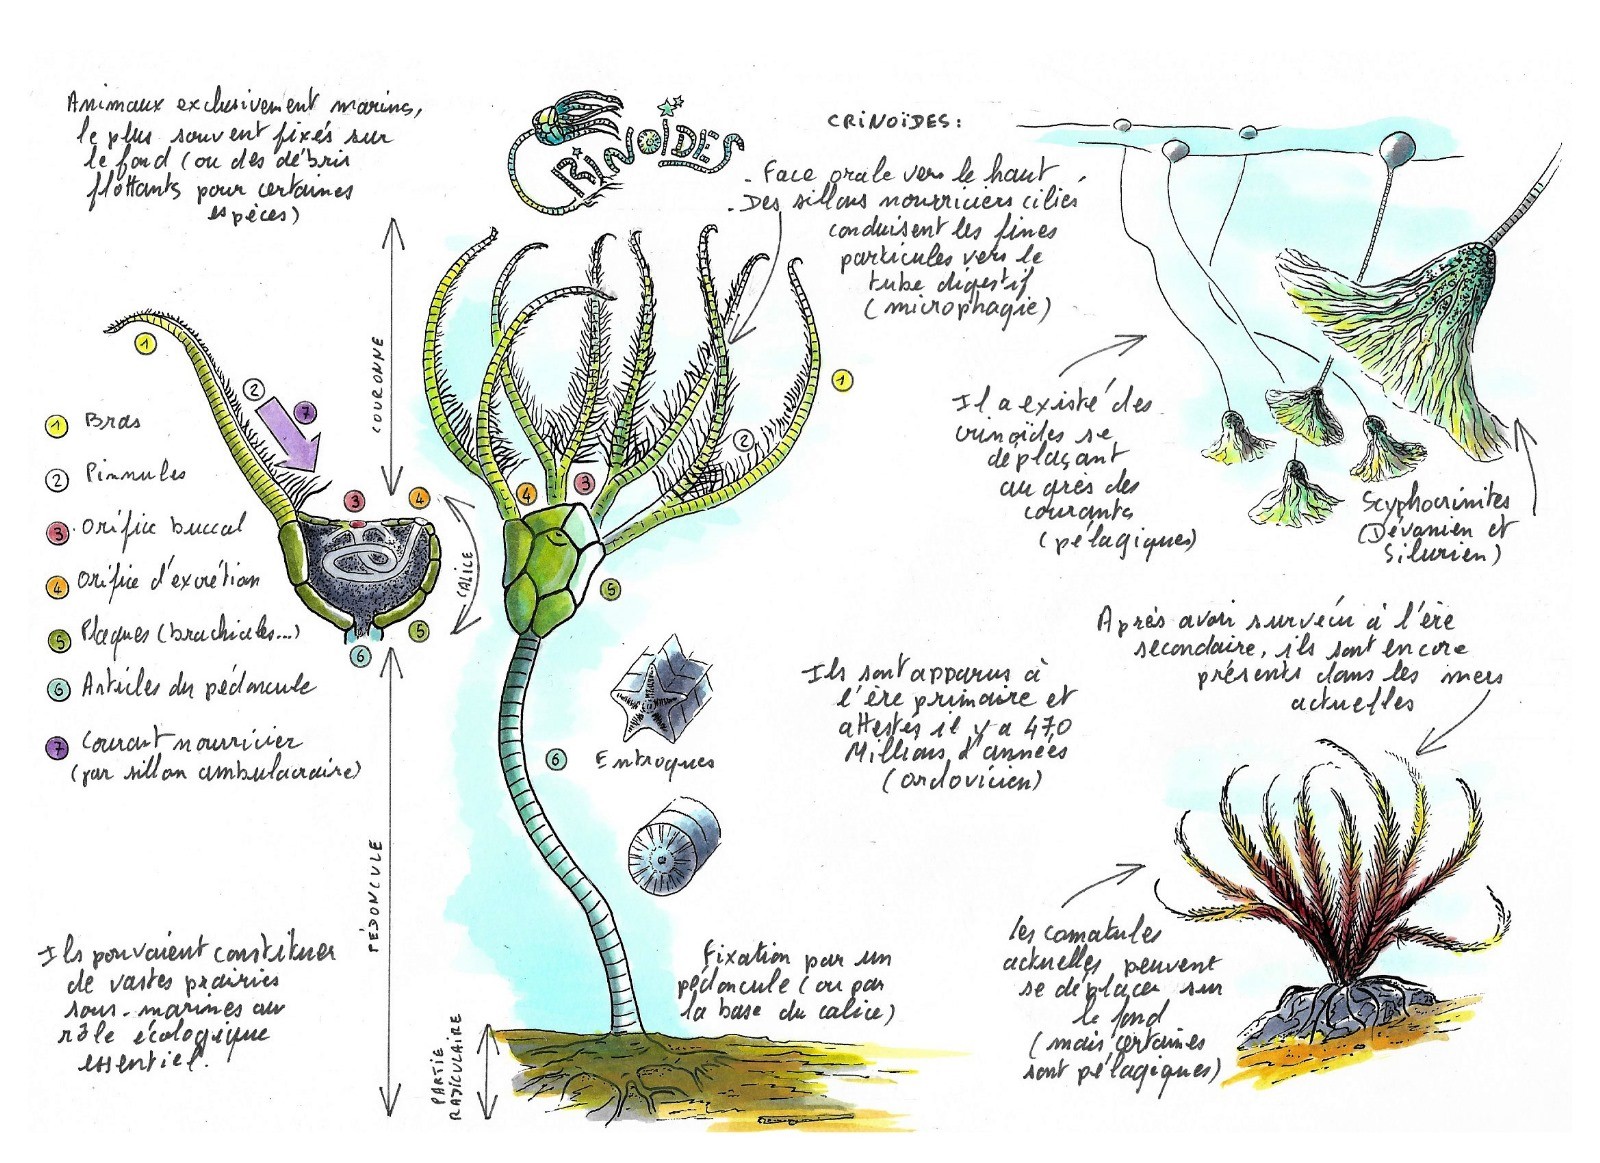 Animaux exclusivement marins,
le plus souvent fixés sur
le fond (ou des débris
flottants pour certaines
espèces)
CRINOÏDES
CRINOÏDES:
- Face orale vers le haut
- Des sillons nourriciers ciliés
conduisent les fines
particules vers le
tube digestif
(microphagie)
COURONNE
1
2
7
3
4
CALICE
5
6
1 Bras
2 Pinnules
3 Orifice buccal
4 Orifice d'excrétion
5 Plaques (brachiales...)
6 Articles du pédoncule
7 Courant nourricier
(par sillon ambulacraire)
PÉDONCULE
Ils pouvaient constituer
de vastes prairies
sous-marines au
rôle écologique
essentiel.
PARTIE
RADICULAIRE
1
2
4
3
5
6
Entroques
Fixation par un
pédoncule (ou par
la base du calice)
Ils sont apparus à
l'ère primaire et
attestés il y a 470
Millions d'années
(ordovicien)
Il a existé des
crinoïdes se
déplaçant
au grès des
courants
(pélagiques)
Scyphocrinites
(Dévonien et
Silurien)
Après avoir survécu à l'ère
secondaire, ils sont encore
présents dans les mers
actuelles
Les comatules
actuelles peuvent
se déplacer sur
le fond
(mais certaines
sont pélagiques)